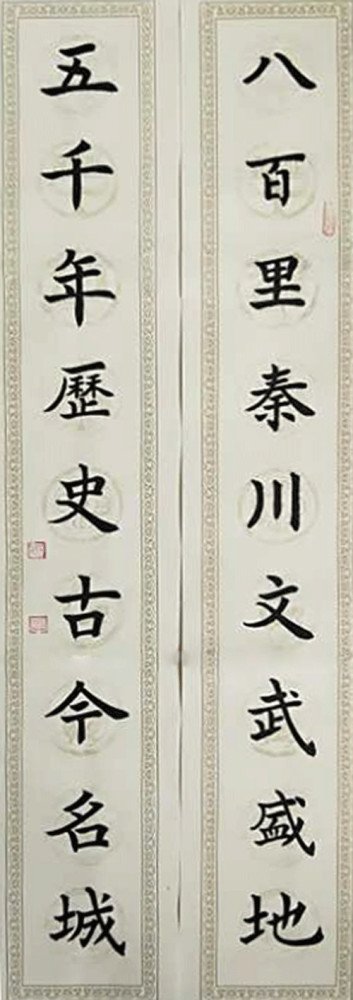 八百里秦川文武盛地
五千年歷史古今名城